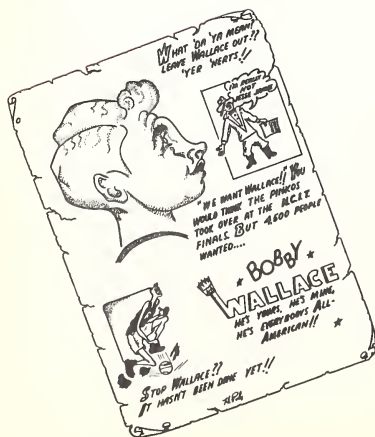 WHAT 'DA 'YA MEAN!
LEAVE WALLACE OUT??
'YER 'NERTS!!
I'M
NOT
JESSE JAMES
"WE WANT WALLACE!! YOU
WOULD THINK THE PINKOS
TOOK OVER AT THE N.C.I.T.
FINALS. BUT 4,600 PEOPLE
WANTED....
BOBBY
WALLACE
HE'S YOURS, HE'S MINE,
HE'S EVERYBODYS ALL-
AMERICAN!!
STOP WALLACE??
IT HASN'T BEEN DONE YET!!